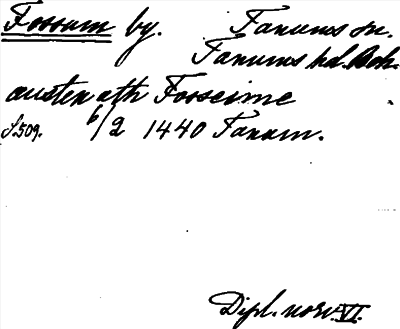 Fossum by. Tanums sn.
Tanums hd. Boh.
austen ath Fosseime
s. 509. 6/2 1440 Tanum.
Dipl. norv. VI.